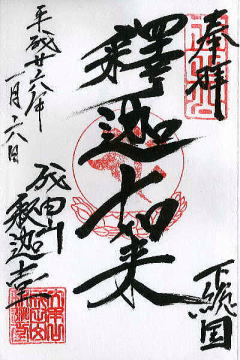 奉拝
下総国
釋迦如来
成田山
釈迦堂
平成廿六年
一月六日